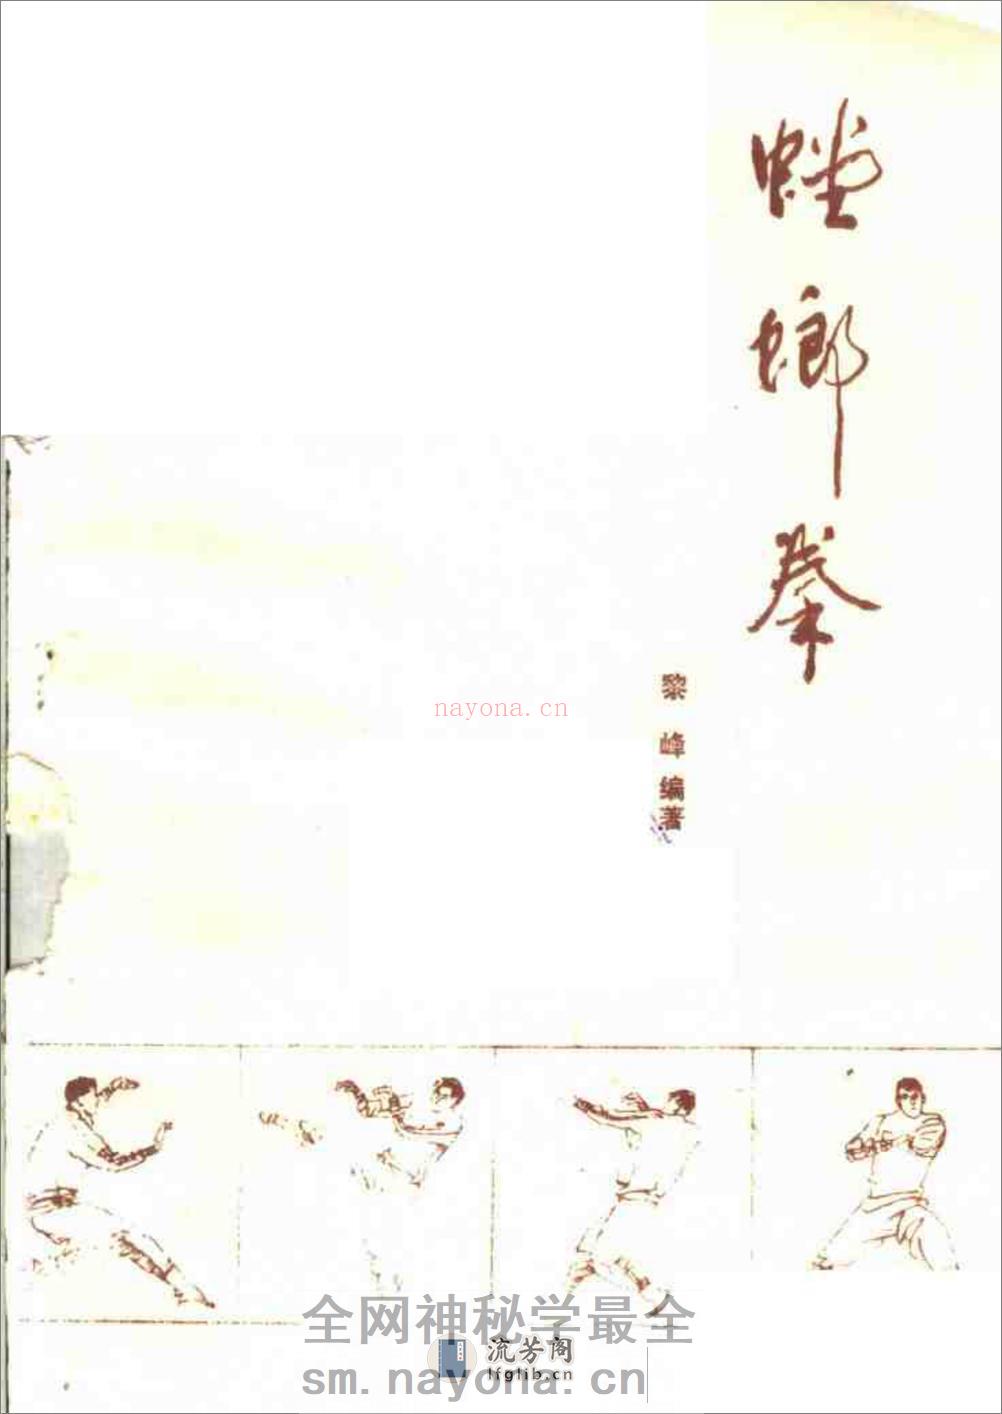 螳螂拳
黎峰编著
nayona.cn
全网神秘学最全
流芳阁
lfglib.cn
sm.nayona.cn